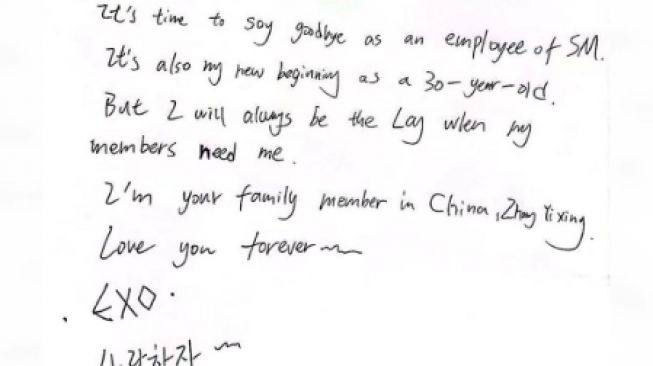 It's time to say goodbye as an employee of SM.
It's also my new beginning as a 30-year-old.
But I will always be the Lay when my
members need me.
I'm your family member in China, Zhang Yixing.
Love you forever~~
EXO.
사랑하자 ~